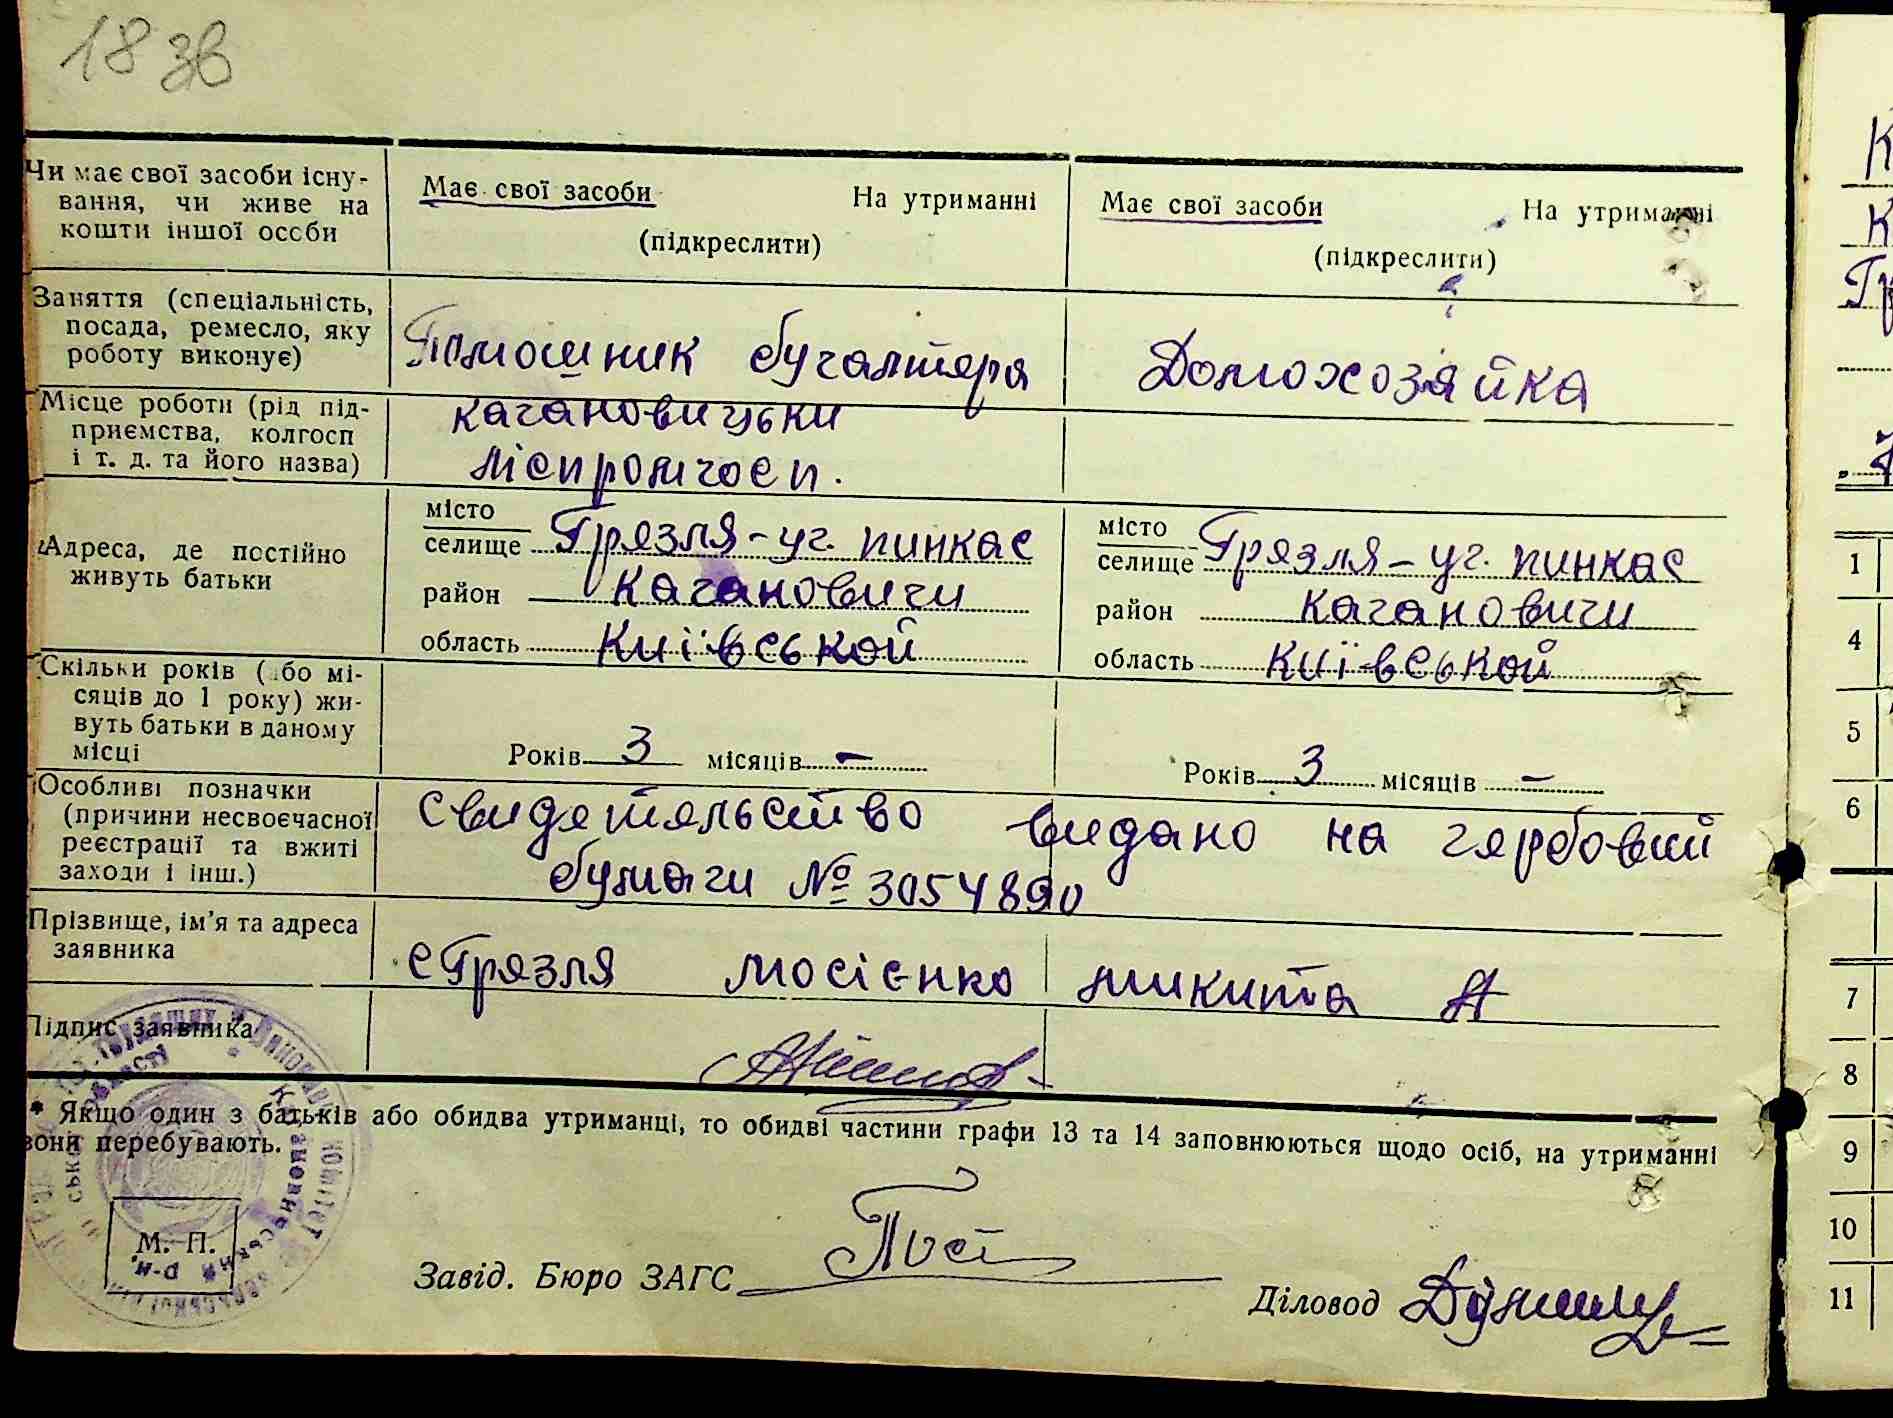 18 зв
Чи має свої засоби існу-
вання, чи живе на
кошти іншої особи
Має свої засоби На утриманні
(підкреслити)
Має свої засоби На утриманні
(підкреслити)
Заняття (спеціальність,
посада, ремесло, яку
роботу виконує)
Помошник бугалтера
Домохозяйка
Місце роботи (рід під-
приємства, колгосп
і т. д. та його назва)
кагановицьки
ліспромгосп.
Адреса, де постійно
живуть батьки
місто
селище Грязля-уг. пинкас
район Кагановичи
область Київськой
місто
селище Грязля-уг. пинкас
район Кагановичи
область Київськой
Скільки років (або мі-
сяців до 1 року) жи-
вуть батьки в даному
місці
Років 3 місяців –
Років 3 місяців –
Особливі позначки
(причини несвоєчасної
реєстрації та вжиті
заходи і інш.)
свидетельство видано на гербовий
бумаги № 3054890
Прізвище, ім'я та адреса
заявника
с Грязля мосієнко микита А
Підпис заявника
* Якщо один з батьків або обидва утриманці, то обидві частини графи 13 та 14 заповнюються щодо осіб, на утриманні
вони перебувають.
М. П.
Завід. Бюро ЗАГС
Діловод
1
4
5
6
7
8
9
10
11